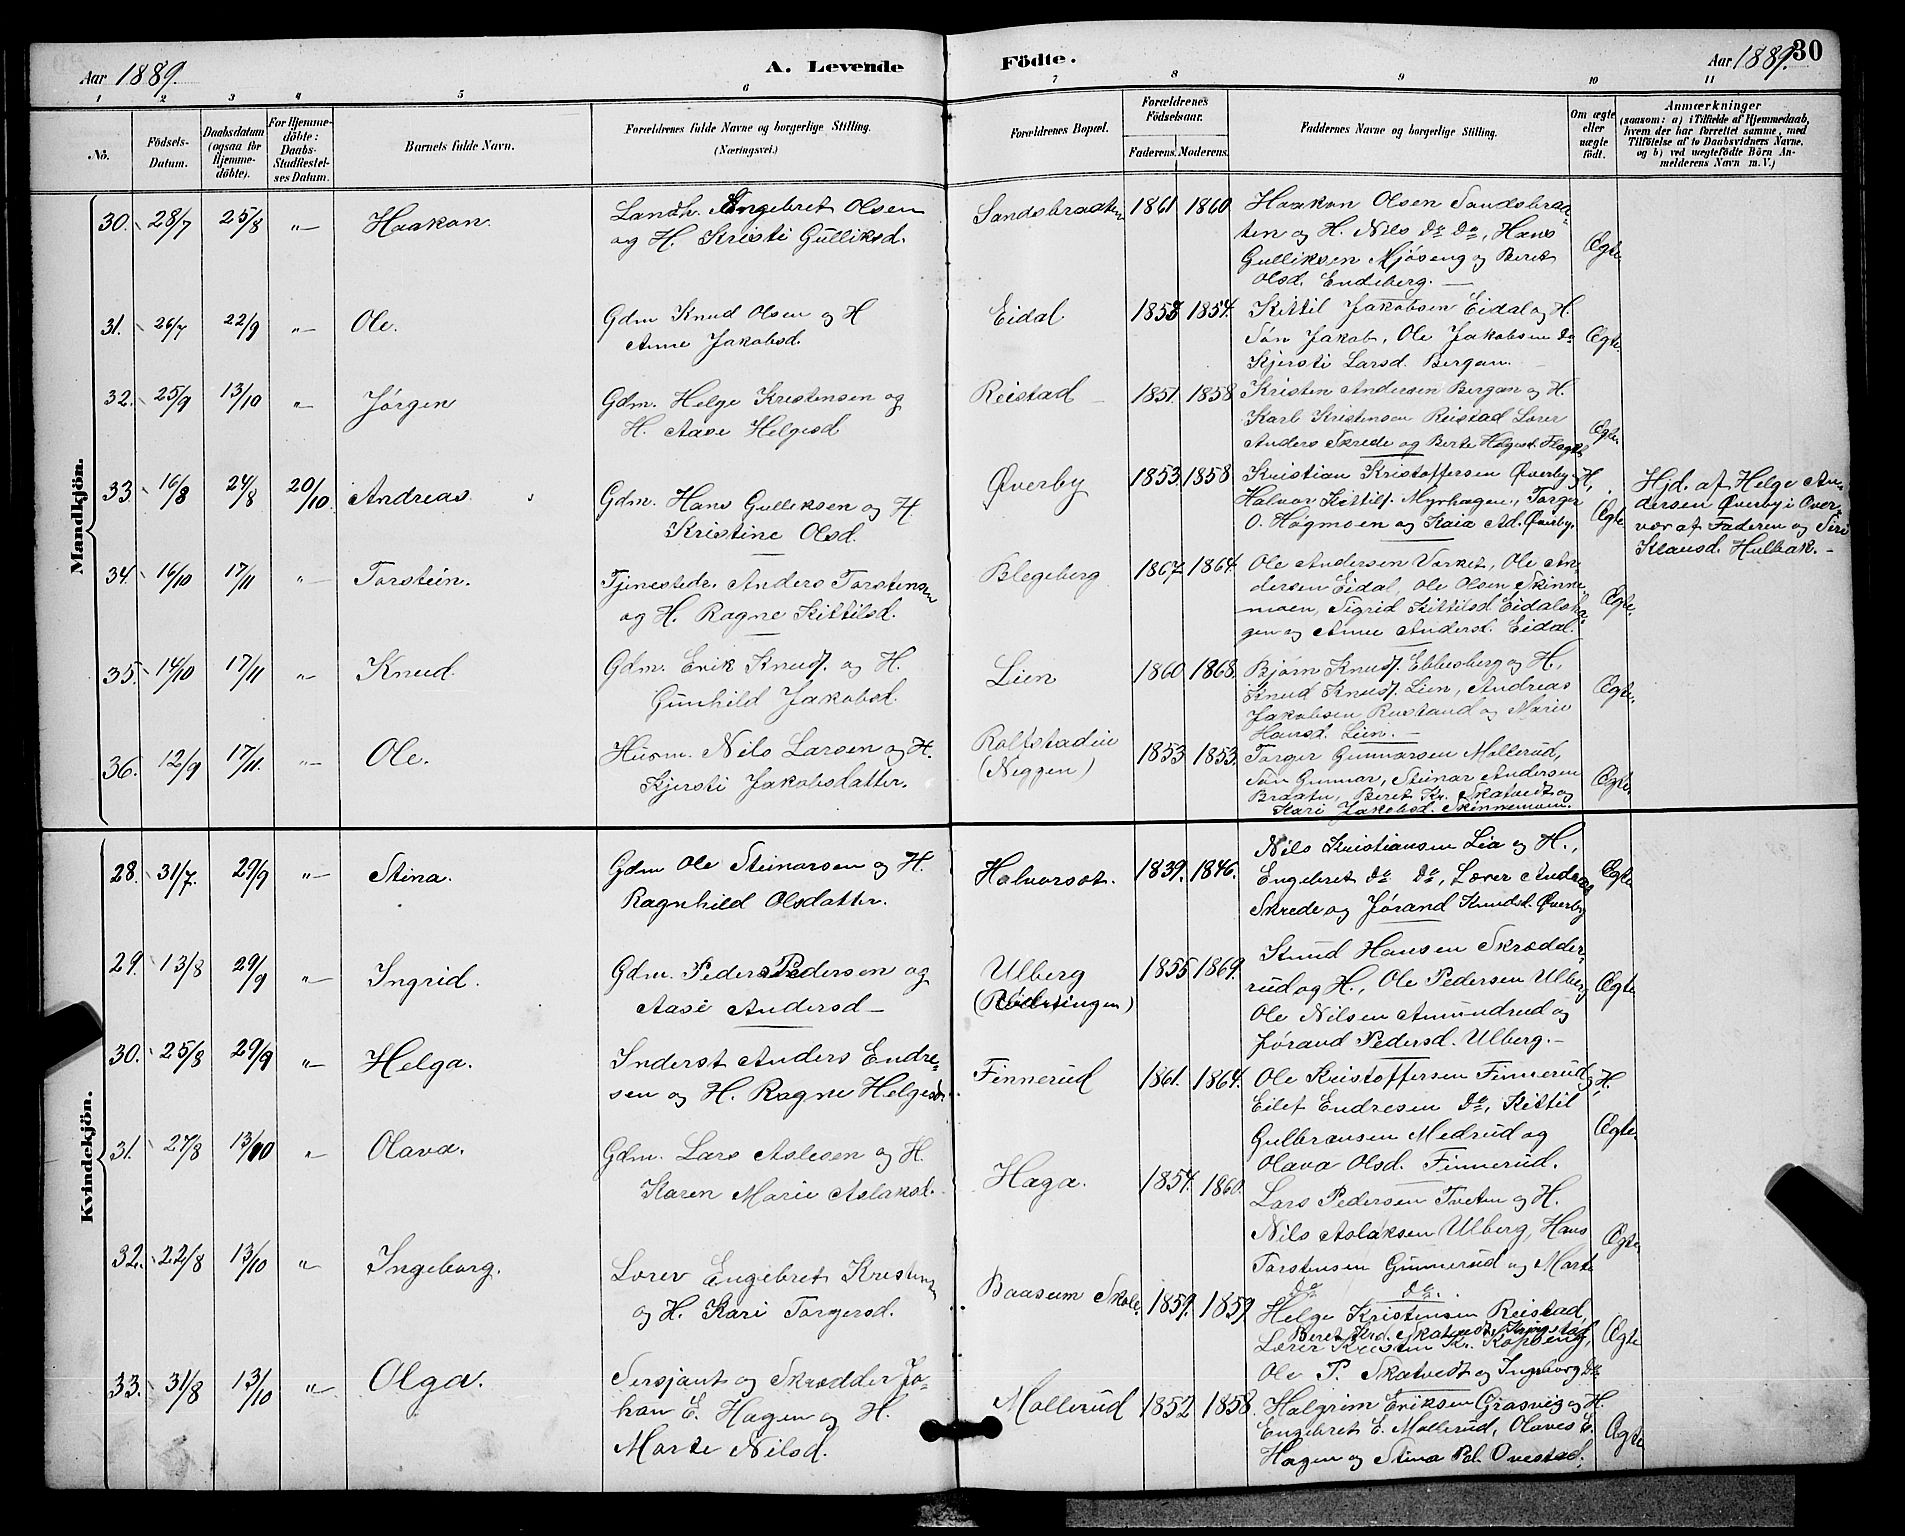 Aar 1889.
A. Levende Födte.
Aar 1889.
30
1 2 3 4 5 6 7 8 9 10 11
No.
Födsels-
Datum.
Daabsdatum
(ogsaa for
Hjemme-
döbte).
For Hjemme-
döbte:
Daabs-
Stadfæstel-
ses Datum.
Barnets fulde Navn.
Forældrenes fulde Navne og borgerlige Stilling.
(Næringsvei.)
Forældrenes Bopæl.
Forældrenes
Födselsaar.
Faderens. Moderens.
Faddernes Navne og borgerlige Stilling.
Om ægte
eller
uægte
födt.
Anmærkninger
(saasom: a) i Tilfælde af Hjemmedaab,
hvem der har forrettet samme, med
Tilföielse af to Daabsvidners Navne,
og b) ved uægtefödte Börn An-
melderens Navn m. V.)
Mandkjön.
30. 28/7 25/8 " Haakon.
Landh. Engebret Olsen
og H. Kristi Gulliksd.
Sandsbraaten 1861 1860
Haakon Olsen Sandsbraa-
ten og H. Nils do do, Hans
Gulliksen Mjøseng og Beret
Olsd. Endeberg.
Ægte
31. 26/7 22/9 " Ole.
Gdm Knud Olsen og H
Anne Jakobsd.
Eidal. 1853 1854.
Kittil Jakobsen Eidal og H.
Søn Jakob, Ole Jakobsen do
Kjersti Larsd. Bergan.
Ægte.
32. 25/9 13/10 " Jørgen
Gdm. Helge Kristensen og
H. Aase Helgesd
Reistad 1851. 1858
Kristen Andersen Bergan og H.
Karl Kristensen Reistad Lærer
Anders Skrede og Berte Helgesd.
Ægte.
33. 16/8 24/8 20/10 Andreas
Gdm. Hans Gulliksen og H
Kristine Olsd.
Øverby 1853. 1858.
Kristian Kristoffersen Øverby og H,
Halvor Kittils. Myrhagen, Torger
O. Høgmoen og Kaia Ad. Øverby.
Ægte
Hjd. af Helge An-
dersen Øverby i Over-
vær af Faderen og Siri
Klausd. Hulbak.
34. 16/10 17/11 " Torstein.
Tjenestedr. Anders Torstensen
og H. Ragne Kittilsd.
Blegeberg 1867. 1864.
Ole Andersen Vorket, Ole An-
dersen Eidal, Ole Olsen Skinne-
moen, Sigrid Kittilsd Eidalsha-
gen og Anne Andersd. Eidal.
Ægte.
35. 14/10 17/11 " Knud.
Gdm. Erik Knus. og H.
Gunhild Jakobsd.
Lien 1860 1868.
Bjørn Knus. Ebbesberg og H,
Knud Knus. Lien, Andreas
Jakobsen Rustand og Marie
Hansd. Lien.
Ægte.
36. 12/9 17/11. " Ole.
Husm. Nils Larsen og H.
Kjersti Jakobsdatter.
Roltstadeie
(Neggen) 1853 1853.
Torger Gunnarsen Mollerud,
Søn Gunnar, Steinar Andersen
Braaten, Beret Kr. Skatvedt og
Kari Jakobsd. Skinnemoen.
Ægte
Kvindekjön.
28. 31/7. 29/9 " Stina.
Gdm Ole Steinarsen og H.
Ragnhild Olsdatter.
Halvorsøt. 1839. 1846.
Nils Kristiansen Lia og H.,
Engebret do do, Lærer Andreas
Skrede og Jørand Knudsd. Øverby
Ægte
29. 13/8 29/9 " Ingrid.
Gdm. Peder Pedersen og
Aase Andersd
Ulberg 1855 1869.
Knud Hansen Skrædder-
rud og H., Ole Pedersen Ulberg
Ole Nilsen Amundrud og
Jørand Pedersd. Ulberg.
Ægte
30. 25/8 29/9 " Helga.
Inderst Anders Endre-
sen og H. Ragne Helgesd.
Finnerud 1861. 1864.
Ole Kristoffersen Finnerud og H,
Eilef Endresen do, Kittil
Gulbransen Medrud og
Olava Olsd. Finnerud.
Ægte.
31. 27/8 13/10 " Olava.
Gdm. Lars Aslesen og H.
Karen Marie Aslaksd.
Haga. 1854. 1860.
Lars Pedersen Tveten og H.
Nils Aslaksen Ulberg, Hans
Torstensen Gunnerud og Marte
do do.
Ægte
32. 22/8 13/10 " Ingeborg.
Lærer Engebret Kristensen
og H. Kari Torgersd.
Baasum Skole. 1859. 1859
Helge Kristensen Reistad,
Beret Krd. Skatvedt, Ringstad,
Lærer Kristen Kr. Kopseng,
Ole P. Skatvedt og Ingeborg do
Ægte
33. 31/8 13/10 " Olga.
Sersjant og Skrædder Jo-
han E. Hagen og H.
Marte Nilsd.
Mollerud 1852 1858.
Halgrim Eriksen Grøsvig og H.
Engebret E. Mollerud, Olaves E.
Hagen og Stina Pd. Ovestad.
Ægte